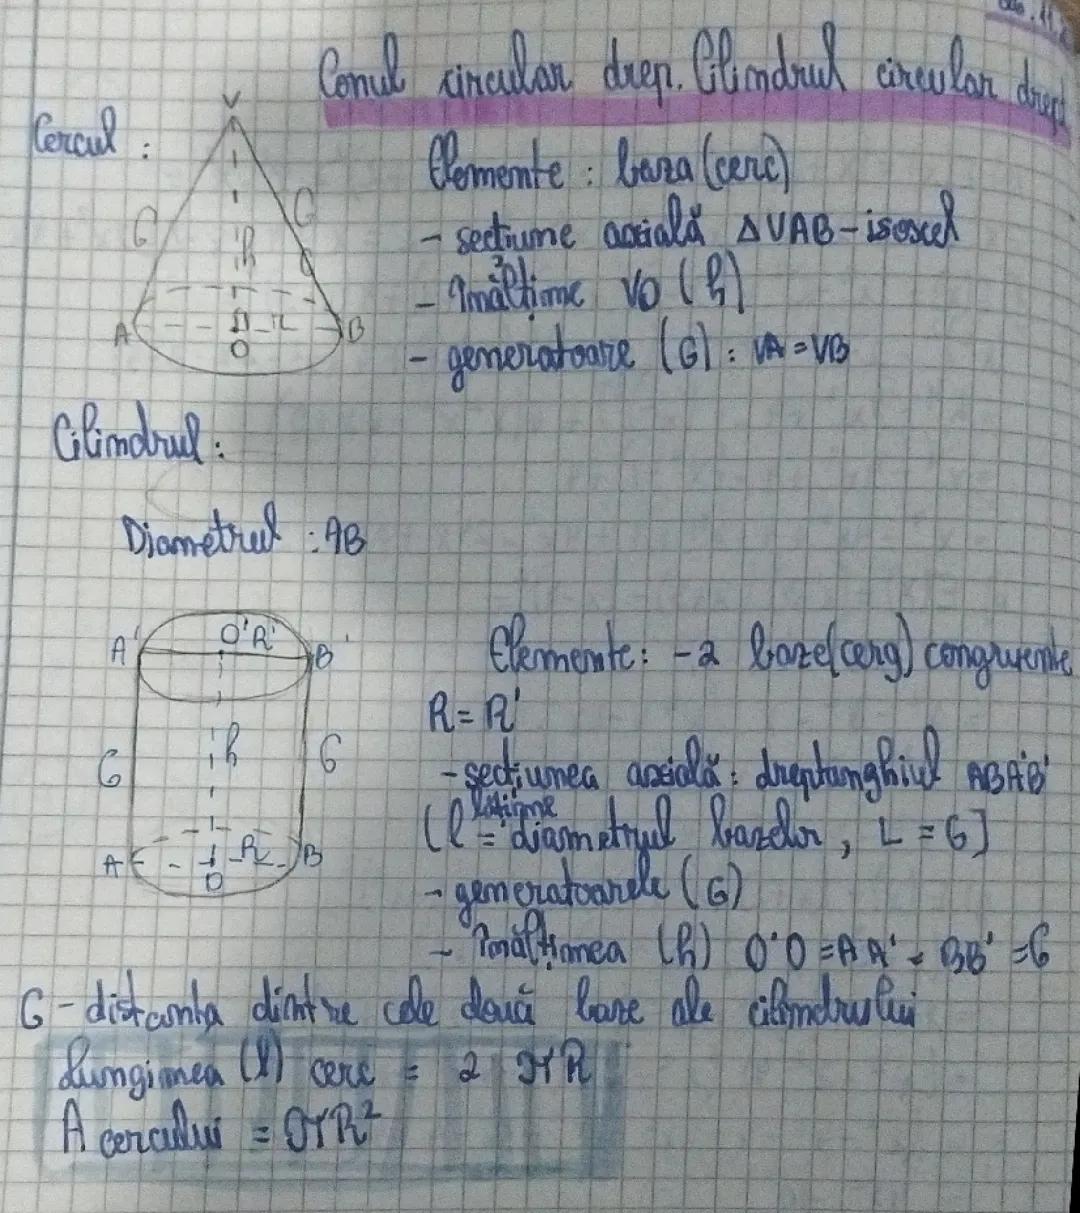 Conul circular drep. Cilindrul circular drept
Cercul :
V
G
G
h
A
r
B
O
Elemente : baza (cerc)
- secțiune axială ΔVAB - isoscel
- Înălțime VO (h)
- generatoare (G) : VA = VB
Cilindrul :
Diametrul : AB
A'
O'
R'
B'
G
h
G
A
R
B
O
Elemente : - 2 baze (cerc) congruente
R = R'
- secțiunea axială : dreptunghiul ABA'B'
lățime
(l = diametrul bazelor, L = G)
- generatoarele (G)
- Înălțimea (h) O'O = AA' = BB' = G
G - distanța dintre cele două baze ale cilindrului
Lungimea (l) cerc = 2 πR
A cercului = πR²